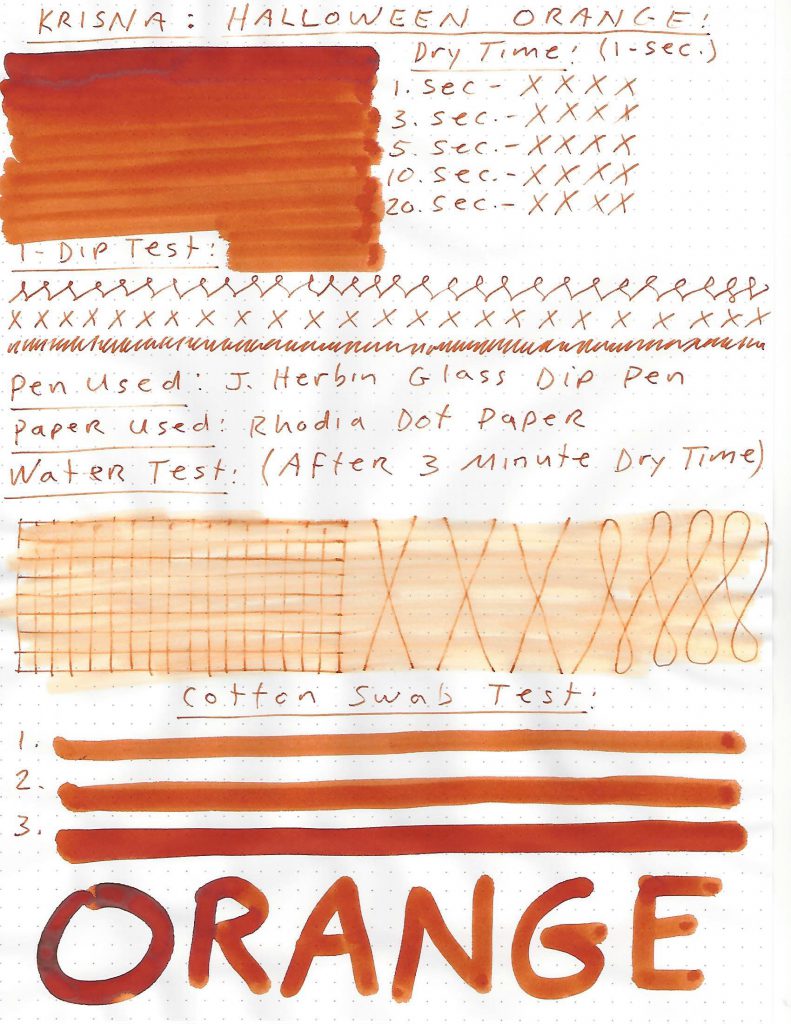 KRISNA: HALLOWEEN ORANGE!
Dry Time: (1-sec.)
1. sec - X X X X
3. sec. - X X X X
5. sec. - X X X X
10. sec. - X X X X
20. sec. - X X X X
1-Dip Test:
X X X X X X X X X X X X X X X X X X X X X X X X X X X X
Pen Used: J. Herbin Glass Dip Pen
Paper Used: Rhodia Dot Paper
Water Test: (After 3 Minute Dry Time)
Cotton Swab Test:
1.
2.
3.
ORANGE